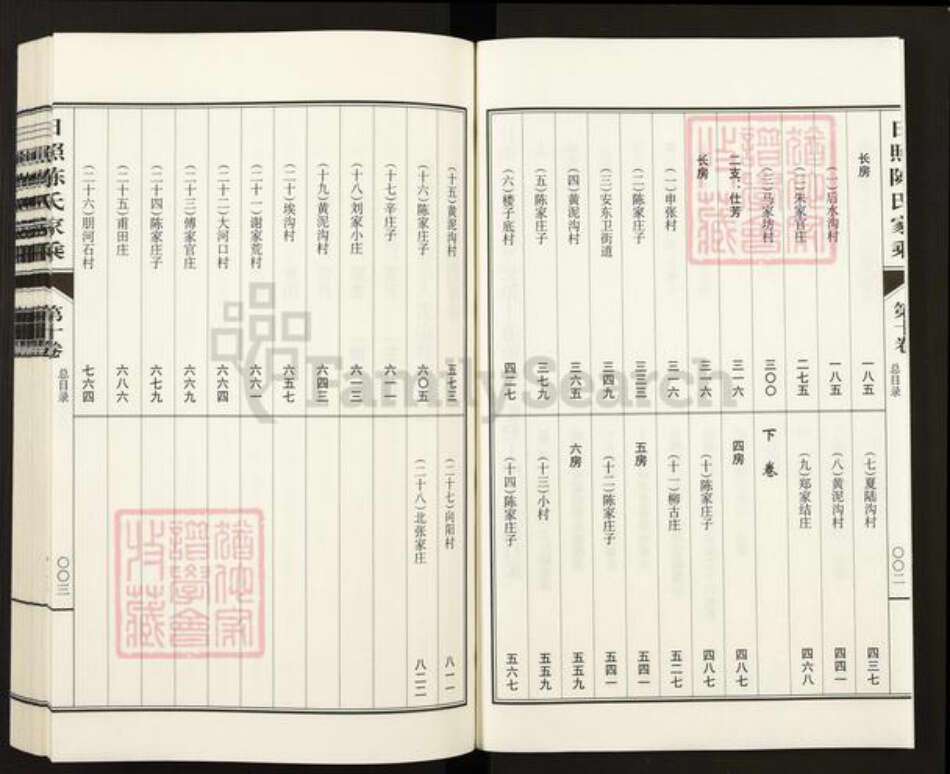 日照陈氏家乘
第十卷
总目录
〇〇二
长房 一八五
(一)后水沟村 一八五
(二)朱家官庄 二七五
(三)马家坊村 三〇〇
二支：仕芳 三一六
长房 三一六
(一)申张村 三一六
(二)陈家庄子 三三三
(三)安东卫街道 三四九
(四)黄泥沟村 三六五
(五)陈家庄子 三七九
(六)楼子底村 四二七
(七)夏陆沟村 四三七
(八)黄泥沟村 四四一
(九)郑家结庄 四六八
下卷
四房 四八七
(十)陈家庄子 四八七
(十一)柳古庄 五二七
五房 五四一
(十二)陈家庄子 五四一
六房 五五九
(十三)小村 五五九
(十四)陈家庄子 五六七
(十五)黄泥沟村 五七三
(十六)陈家庄子 六〇五
(十七)辛庄子 六一一
(十八)刘家小庄 六一三
(十九)黄泥沟村 六四三
(二十)埃沟村 六五七
(二十一)谢家荒村 六六一
(二十二)大河口村 六六四
(二十三)傅家官庄 六六九
(二十四)陈家庄子 六七九
(二十五)甫田庄 六八六
(二十六)朋河石村 七六四
(二十七)向阳村 八一一
(二十八)北张家庄 八二二
日照陈氏家乘
第十卷
总目录
〇〇三
FamilySearch